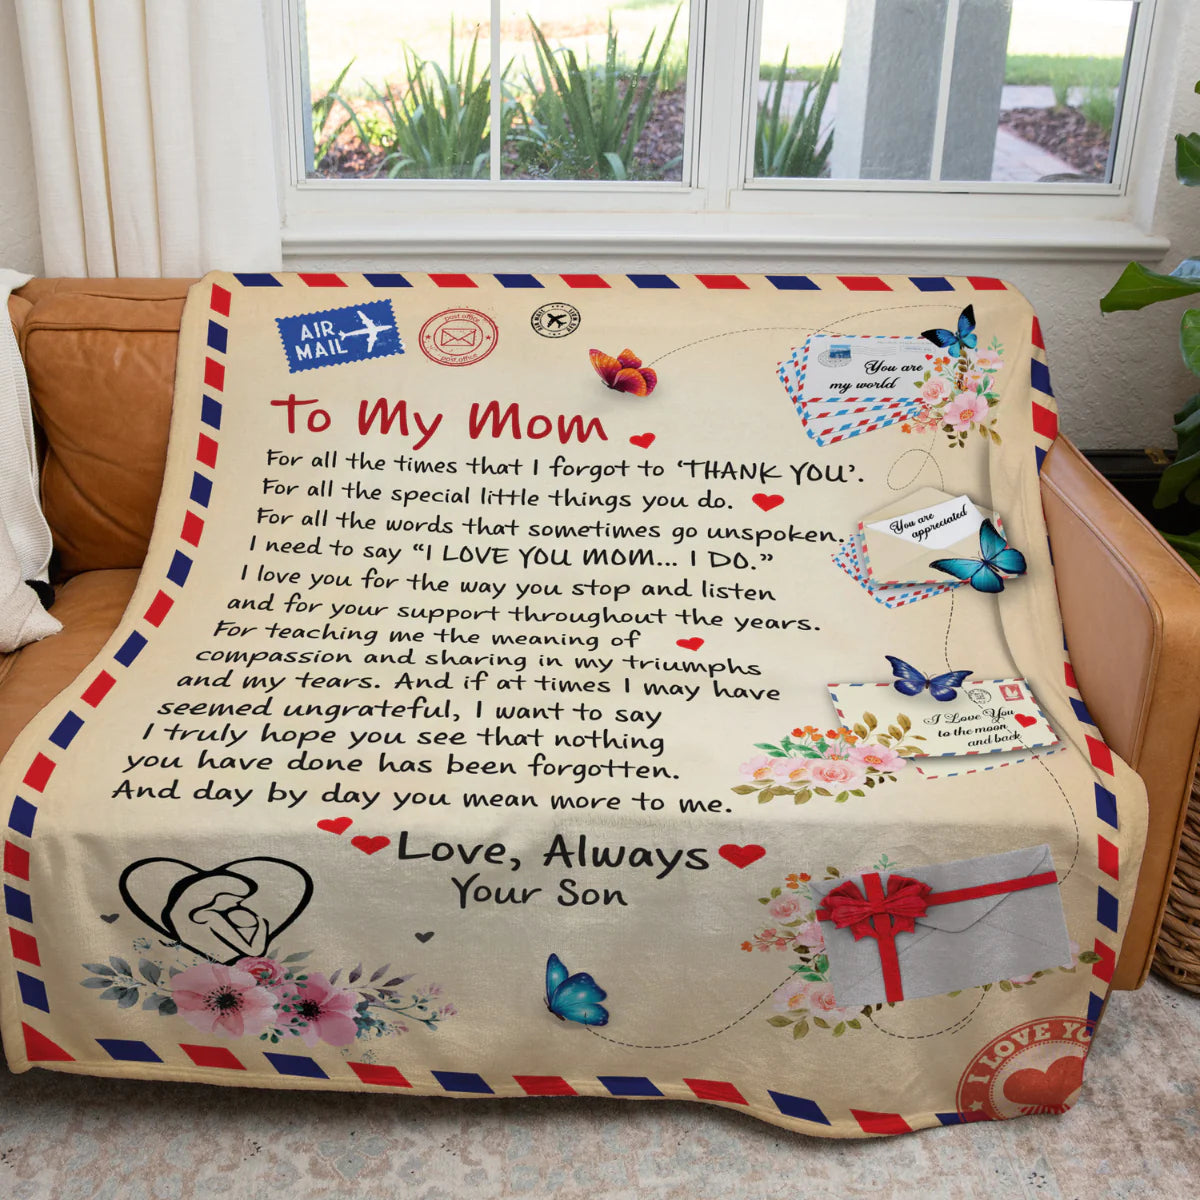 AIR
MAIL
post office
post office
AIR MAIL
To My Mom
For all the times that I forgot to ‘THANK YOU’.
For all the special little things you do.
For all the words that sometimes go unspoken.
I need to say “I LOVE YOU MOM... I DO.”
I love you for the way you stop and listen
and for your support throughout the years.
For teaching me the meaning of
compassion and sharing in my triumphs
and my tears. And if at times I may have
seemed ungrateful, I want to say
I truly hope you see that nothing
you have done has been forgotten.
And day by day you mean more to me.
Love, Always
Your Son
You are
my world
You are
appreciated
I Love You
to the moon
and back
I LOVE YO